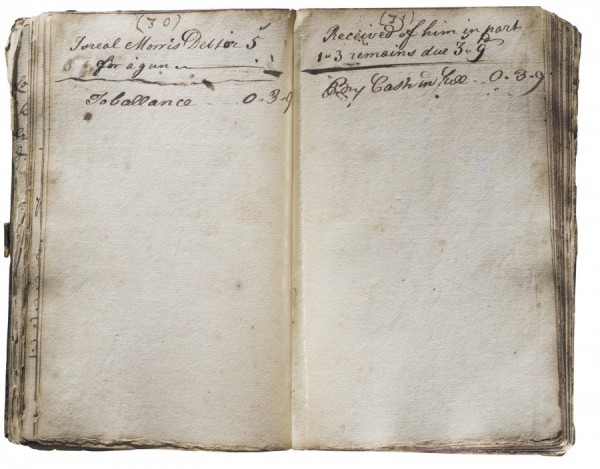 (30)
Isreal Morris Debtor 5
for a gun
To ballance 0-3-9
(31)
Received of him in part
1-3 remains due 3-9
By Cash in full 0-3-9